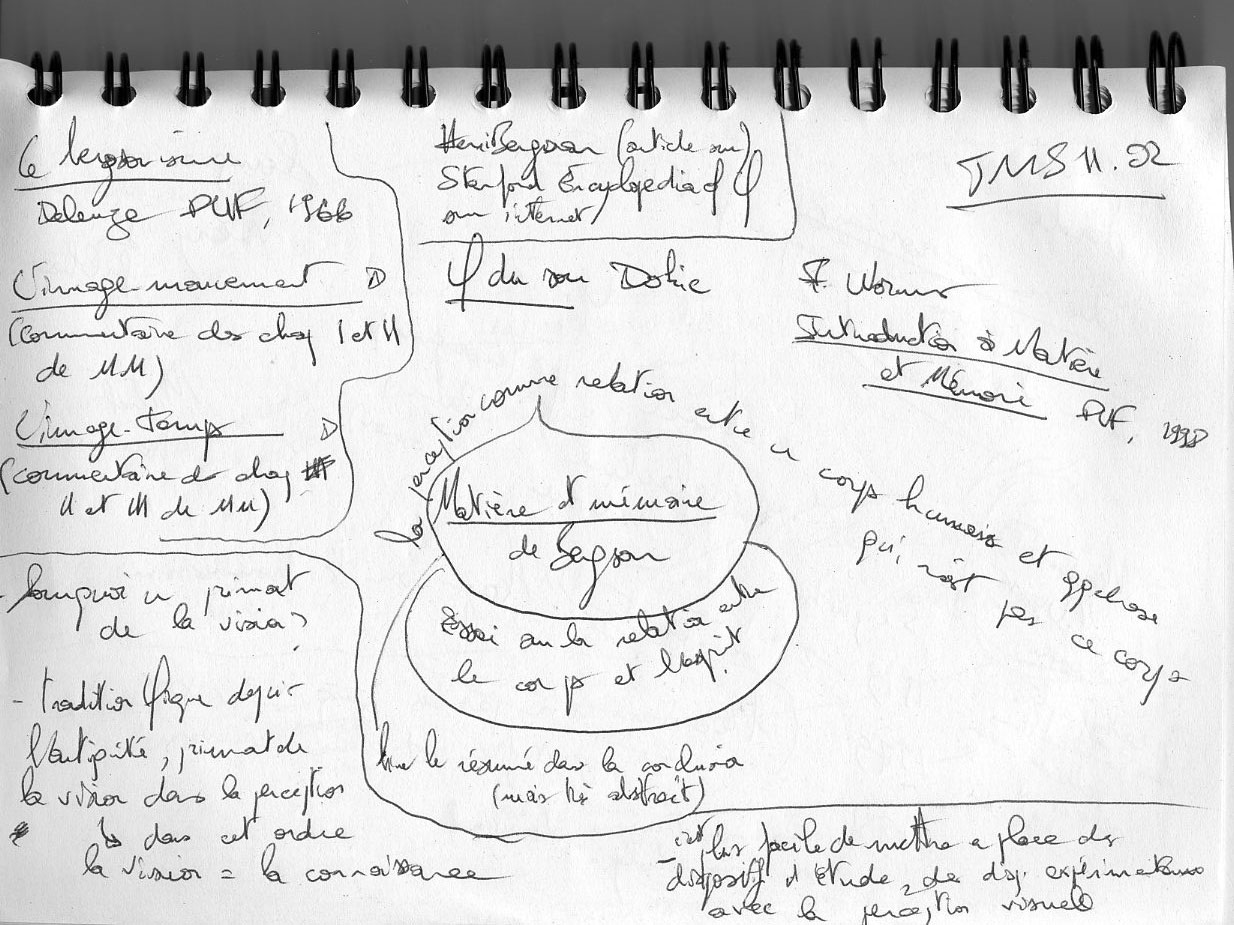 Le bergsonisme
Deleuze PUF, 1966
L'image-mouvement
(commentaire des chap I et II
de MM)
L'image-temps
(commentaire des chap
II et III de MM)
Henri Bergson (article sur
Stanford Encyclopedia of φ
sur internet)
φ du son Dokic
F. Worms
Introduction à Matière
et Mémoire PUF, 1998
La perception comme relation entre un corps humain et qqchose
qui n'est pas ce corps
Matière et mémoire
de Bergson
Essai sur la relation entre
le corps et l'esprit
lire le résumé dans la conclusion
(mais très abstrait)
- Pourquoi un primat
de la vision ?
- tradition φique depuis
l'antiquité, primat de
la vision dans la perception
↳ dans cet ordre
la vision = la connaissance
- c'est plus facile de mettre en place des
dispositifs d'étude, des disp. expérimentaux
avec la perception visuelle